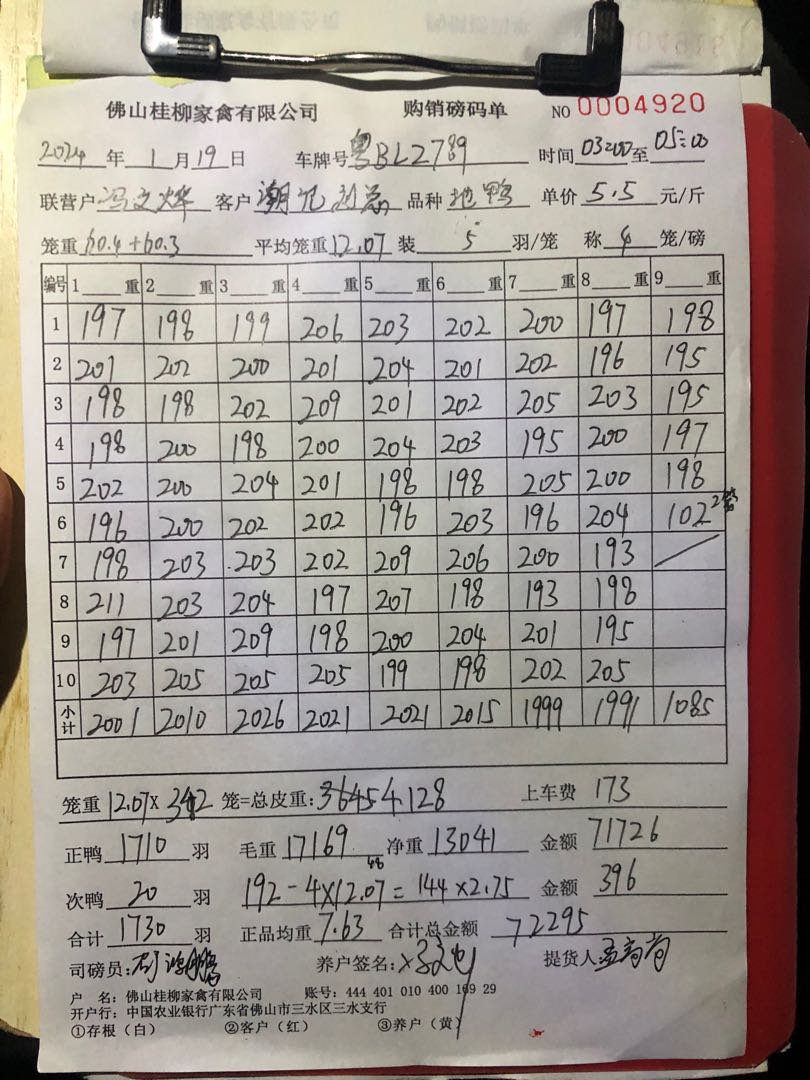 佛山桂柳家禽有限公司 购销磅码单 NO 0004920
2024 年 1 月 19 日 车牌号 粤BL2789 时间 03:00 至 05:00
联营户 冯文烨 客户 潮记 品种 地鸭 单价 5.5 元/斤
笼重 60.4+60.3 平均笼重 12.07 装 5 羽/笼 称 4 笼/磅
编号 1 重 2 重 3 重 4 重 5 重 6 重 7 重 8 重 9 重
1 197 198 199 206 203 202 200 197 198
2 201 202 200 201 204 201 202 196 195
3 198 198 202 209 201 202 205 203 195
4 198 200 198 200 204 203 195 200 197
5 202 200 204 201 198 198 205 200 198
6 196 200 202 202 196 203 196 204 102 2笼
7 198 203 203 202 209 206 200 193
8 211 203 204 197 207 198 193 198
9 197 201 209 198 200 204 201 195
10 203 205 205 205 199 198 202 205
小计 2001 2010 2026 2021 2021 2015 1999 1991 1085
笼重 12.07 X 342 笼=总皮重: 4128 上车费 173
正鸭 1710 羽 毛重 17169 净重 13041 金额 71726
次鸭 20 羽 192-4×12.07=144×2.75 金额 396
合计 1730 羽 正品均重 7.63 合计总金额 72295
司磅员: 养户签名: 提货人
户 名: 佛山桂柳家禽有限公司 账号: 444 401 010 400 169 29
开户行: 中国农业银行广东省佛山市三水区三水支行
①存根（白） ②客户（红） ③养户（黄）